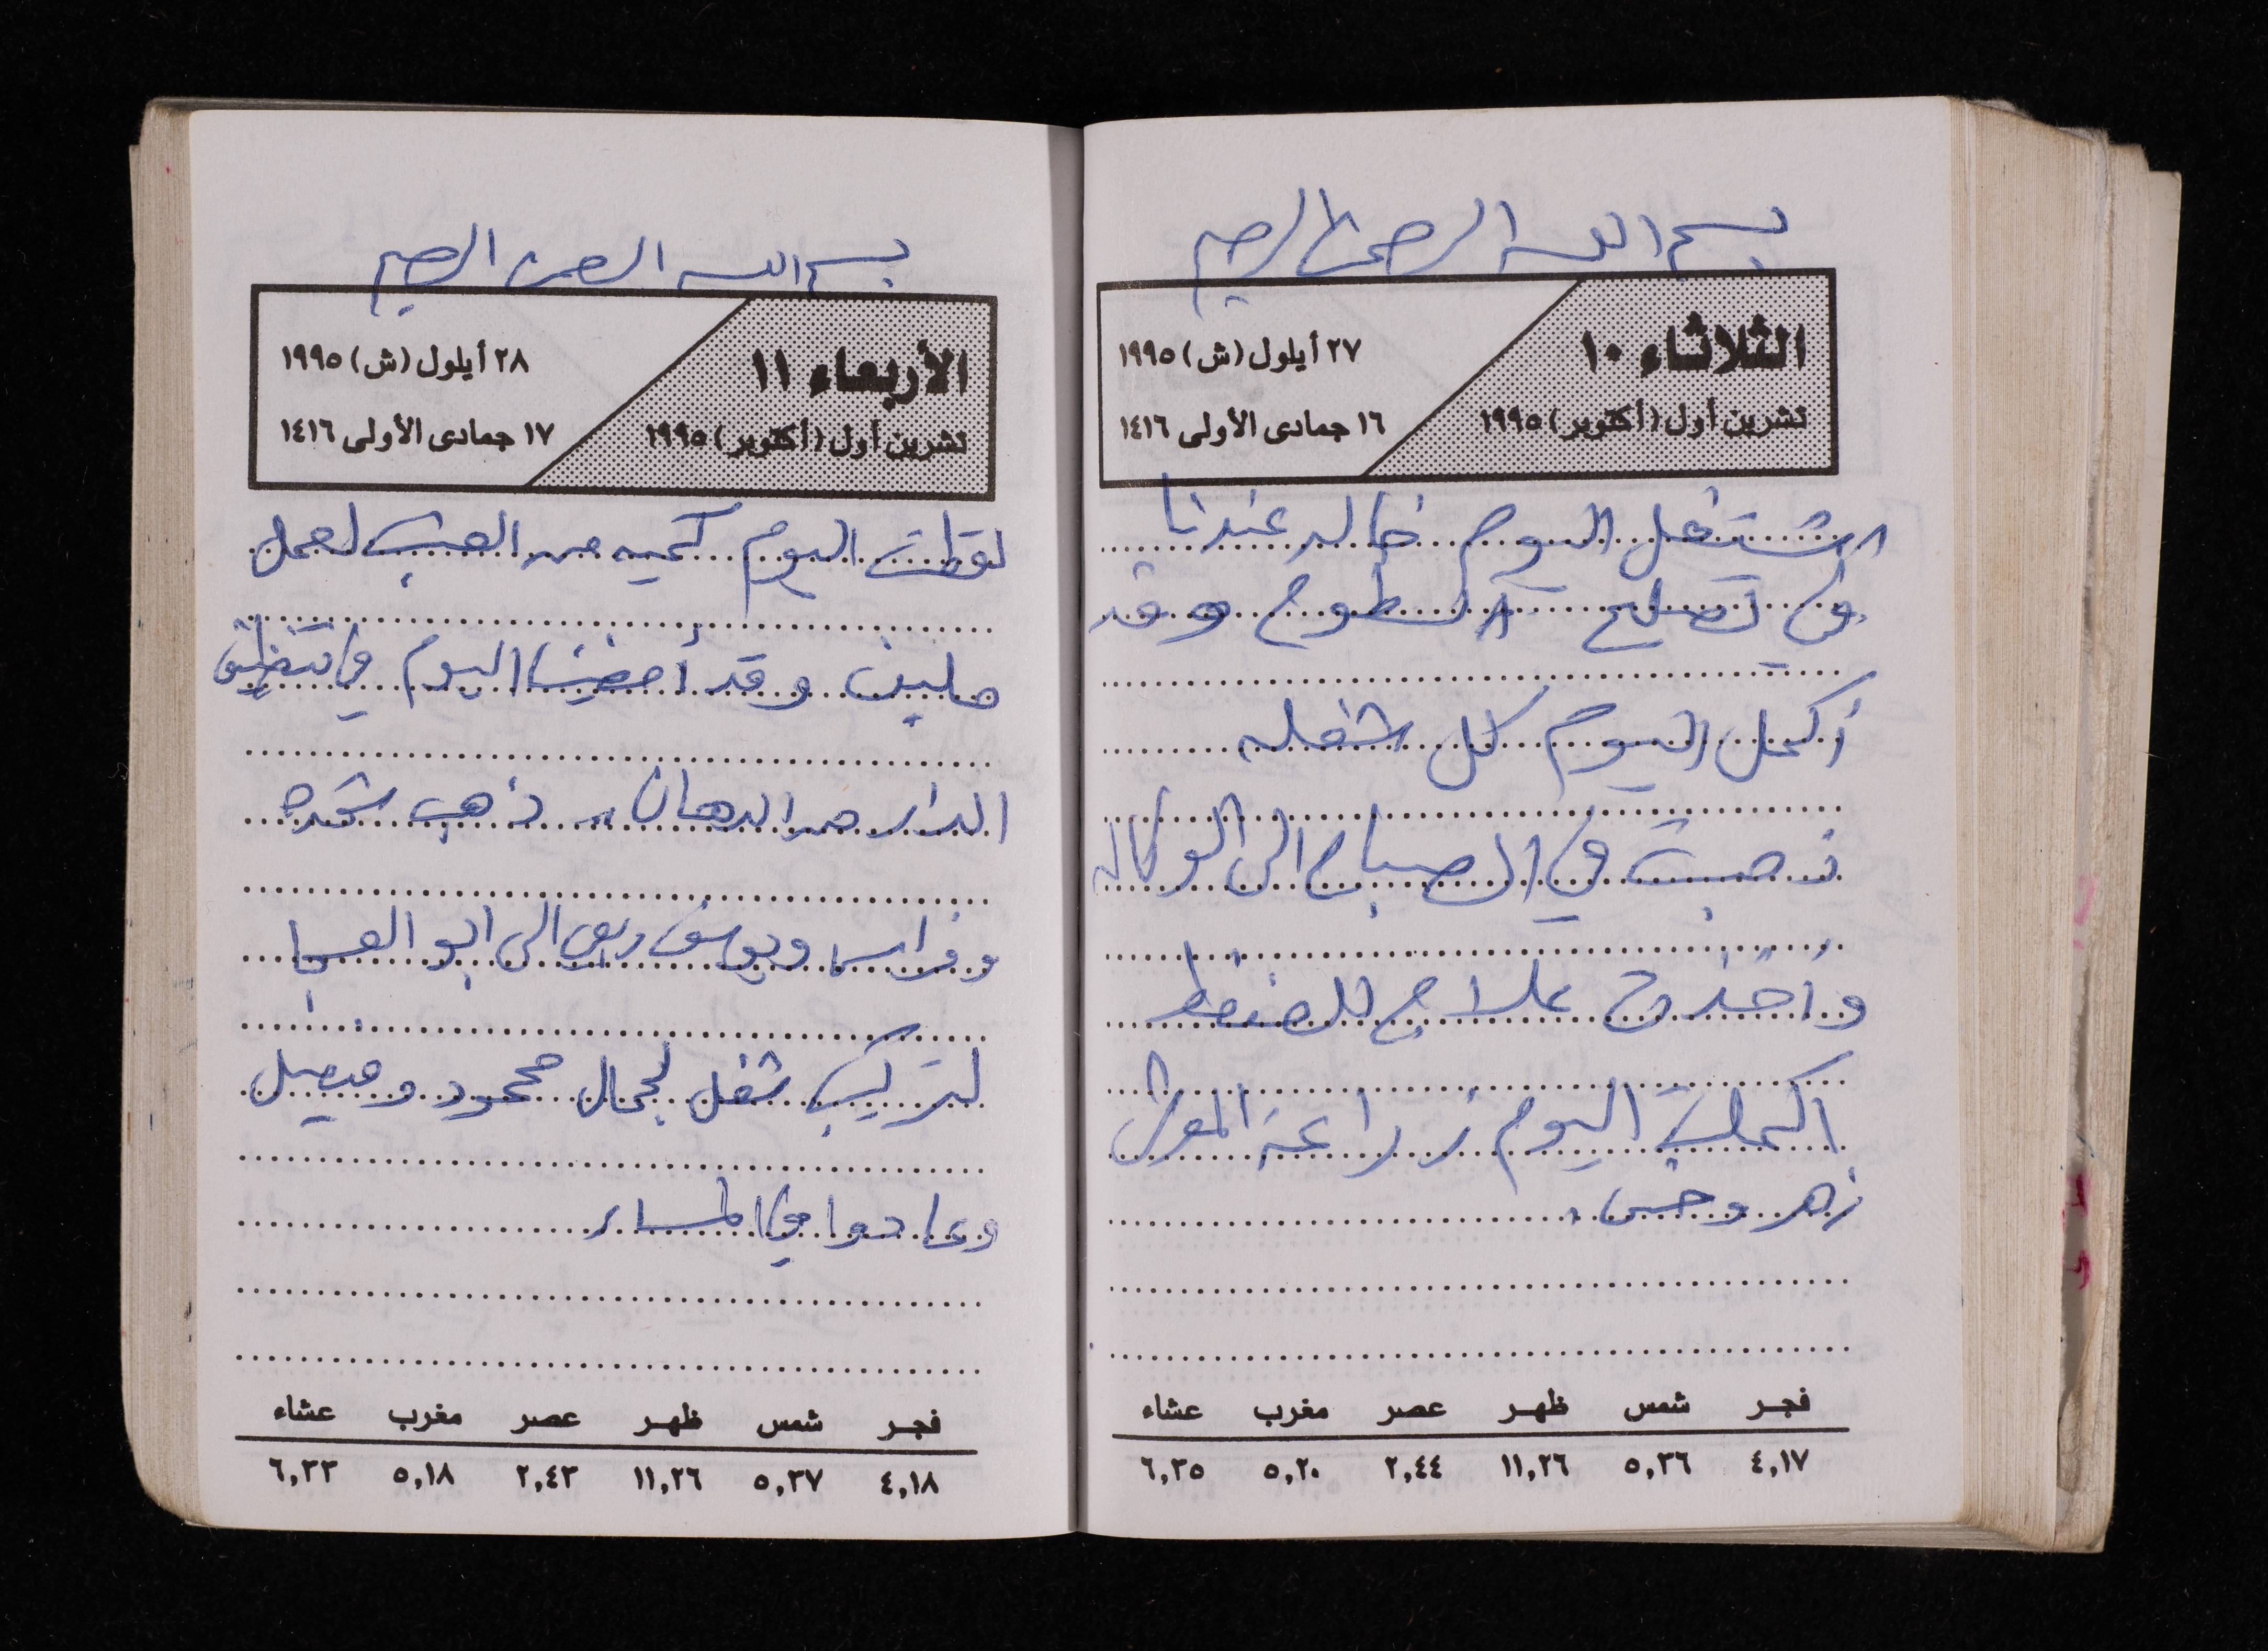 بسم الله الرحمن الرحيم
الثلاثاء ١٠
تشرين أول (أكتوبر) ١٩٩٥
٢٧ أيلول (ش) ١٩٩٥
١٦ جمادى الأولى ١٤١٦
اشتغل اليوم خالد عندنا
في تصليح السطوح وقد
أكمل اليوم كل شغله
ذهبت في الصباح الى الوكاله
وأخذت علاج للضغط
اكملت اليوم زراعة
زهر وخس.
فجر شمس ظهر عصر مغرب عشاء
٤,١٧ ٥,٣٦ ١١,٢٦ ٢,٤٤ ٥,٢٠ ٦,٣٥
بسم الله الرحمن الرحيم
الأربعاء ١١
تشرين أول (أكتوبر) ١٩٩٥
٢٨ أيلول (ش) ١٩٩٥
١٧ جمادى الأولى ١٤١٦
لقطت اليوم كميه من العنب لعمل
ملبن وقد أمضينا اليوم في تنظيف
الدار من الدهان. ذهب شحده
وفراس ويوسف ربعي الى ابو
لتركيب شغل لجمال محمود وفيصل
وعادوا في المساء
فجر شمس ظهر عصر مغرب عشاء
٤,١٨ ٥,٣٧ ١١,٢٦ ٢,٤٣ ٥,١٨ ٦,٣٣